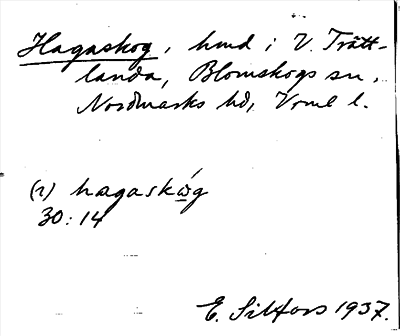 Hagaskog, hmd i V. Trätt-
landa, Blomskogs sn,
Nordmarks hd, Vrml l.
(1) hagaskώg
30:14
E. Silfors 1937.